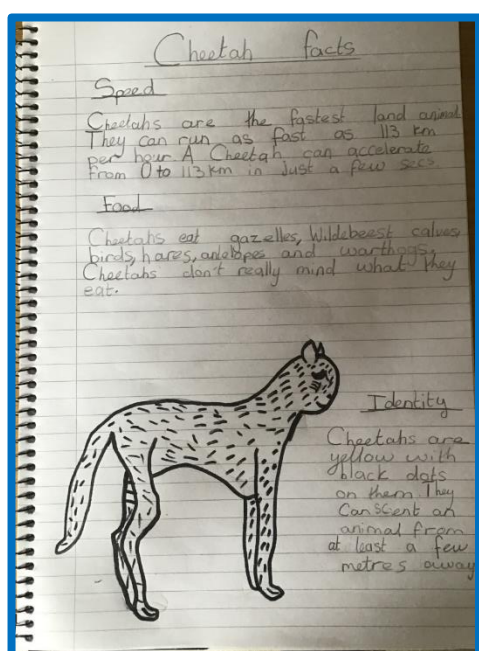 Cheetah facts
Speed
Cheetahs are the fastest land animal
They can run as fast as 113 km
per hour A Cheetah can accelerate
from 0 to 113km in Just a few secs
Food
Cheetahs eat gazelles, Wildebeest calves,
birds, hares, antelopes and warthogs.
Cheetahs don't really mind what they
eat.
Identity
Cheetahs are
yellow with
black dots
on them They
Can scient an
animal from
at least a few
metres away